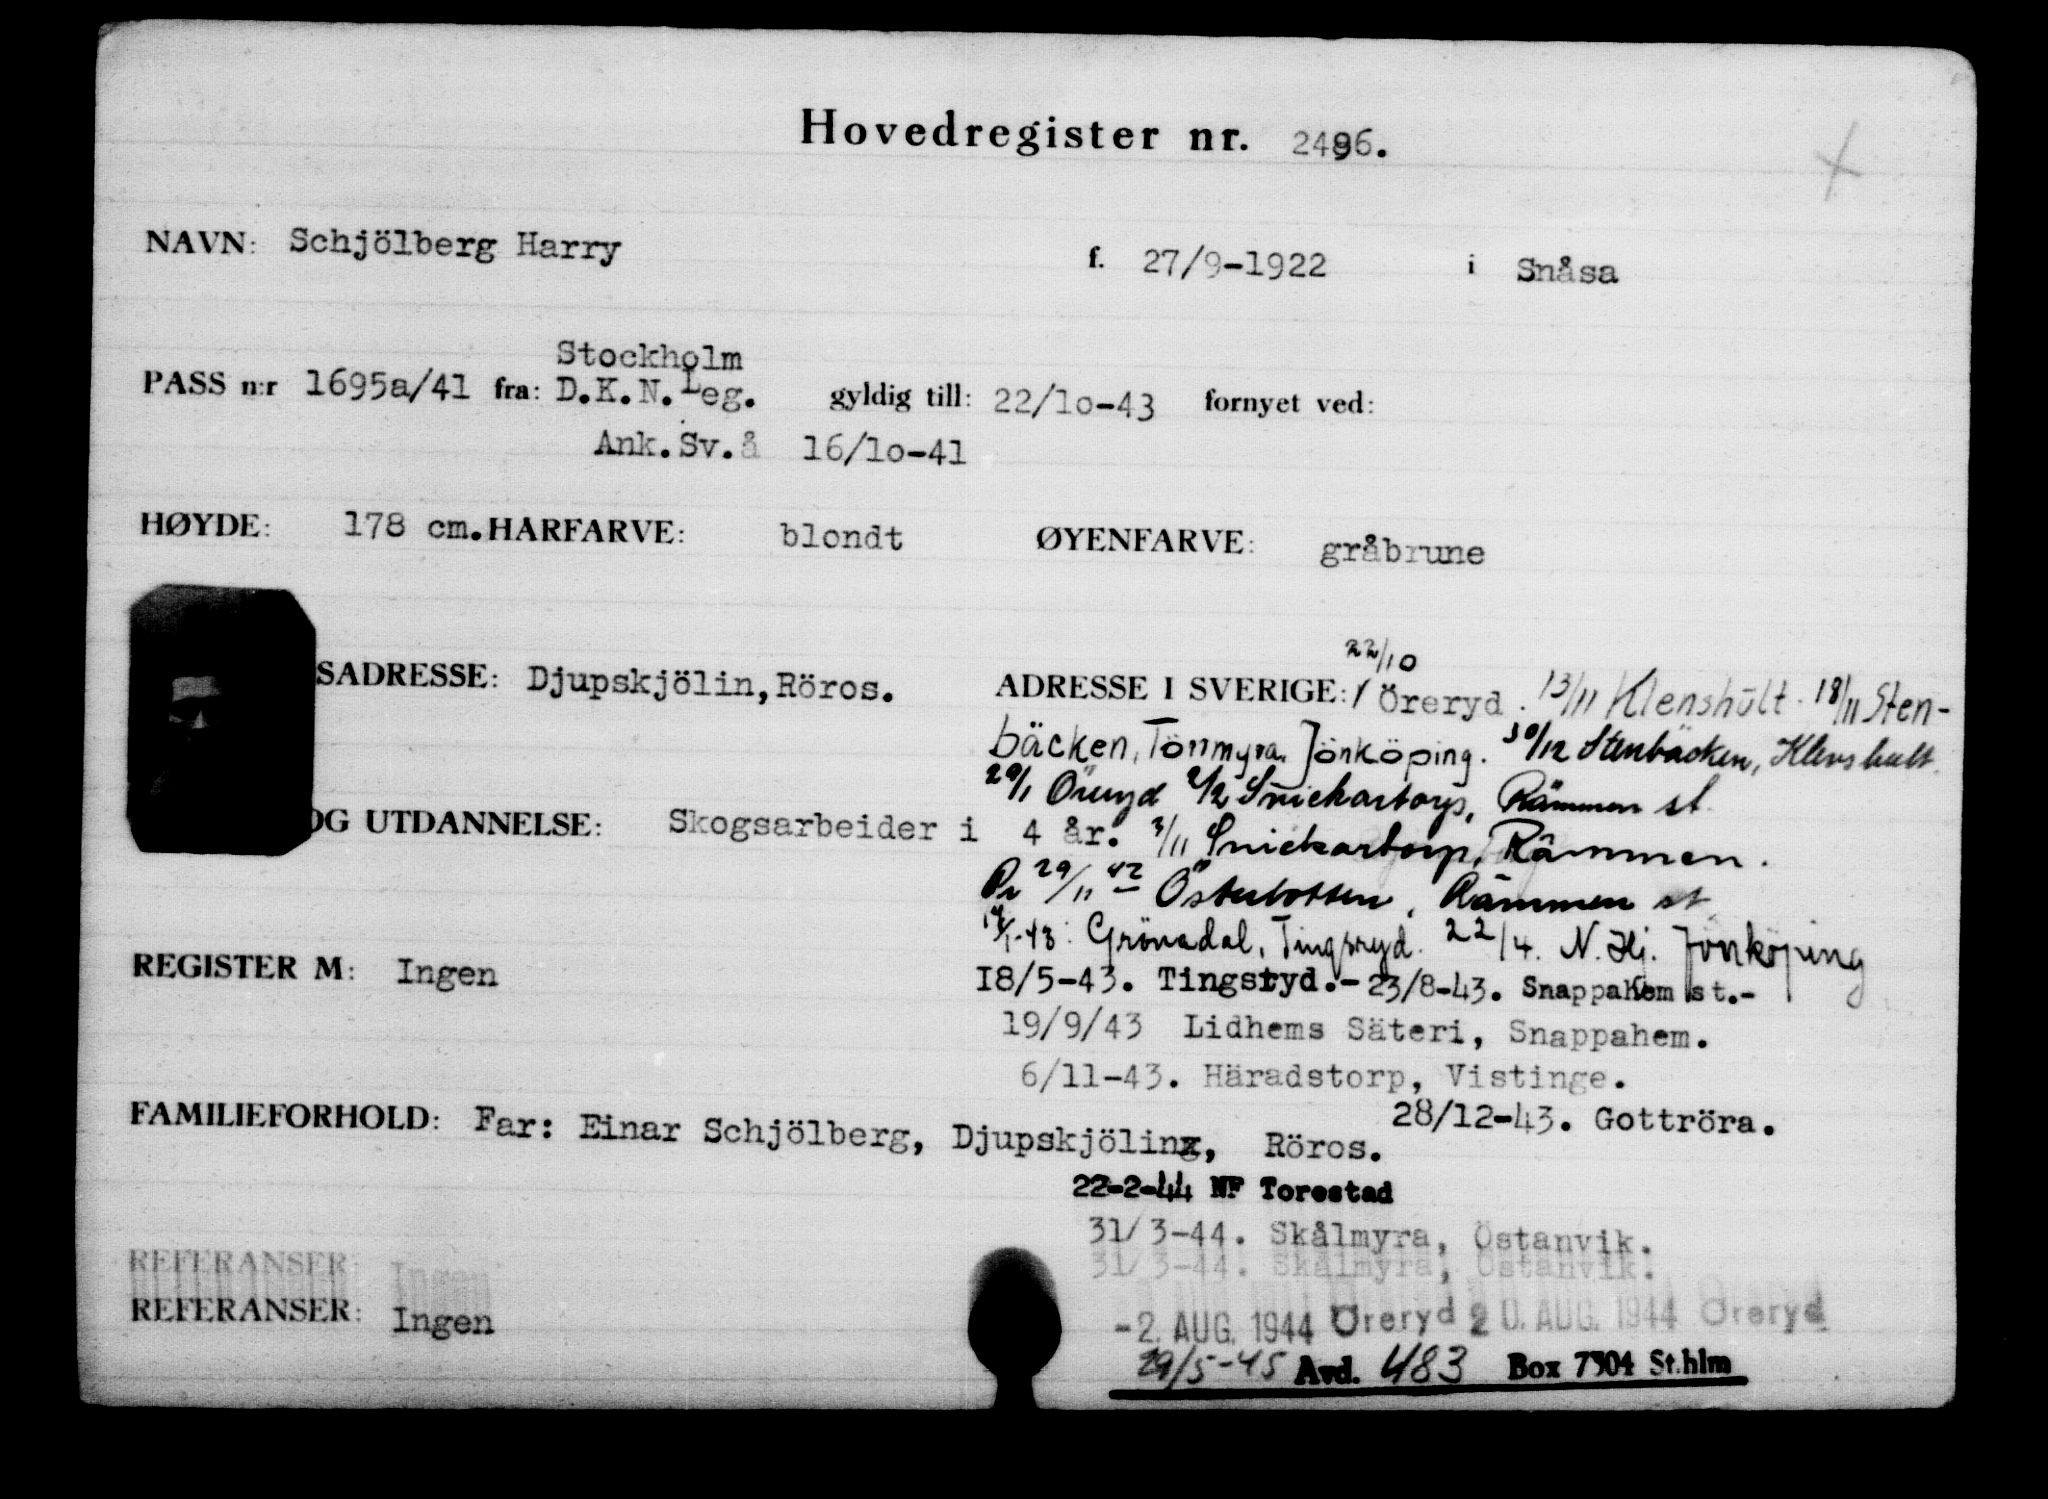 Hovedregister nr. 2496.
NAVN: Schjölberg Harry f. 27/9-1922 i Snåsa
Stockholm
PASS n:r 1695a/41 fra: D.K.N.Leg. gyldig till: 22/1o-43 fornyet ved:
Ank.Sv.å 16/1o-41
HØYDE: 178 cm. HARFARVE: blondt ØYENFARVE: gråbrune
22/10
SADRESSE: Djupskjölin, Röros. ADRESSE I SVERIGE: / Öreryd. 13/11 Klenshult. 18/11 Sten-
bäcken, Tönnmyra. Jönköping. 30/12 Stenbäcken, Klenshult.
29/1 Öreryd 2/2 Snickartorp, Rämmen st.
OG UTDANNELSE: Skogsarbeider i 4 år. 3/11 Snickartorp, Rämmen.
Pr 29/11 42 Österbotten, Rämmen st
/1-43: Grönadal, Tingsryd. 22/4. N. Hj. Jönköping
REGISTER M: Ingen 18/5-43. Tingsryd.- 23/8-43. Snappahem st.-
19/9/43 Lidhems Säteri, Snappahem.
6/11-43. Häradstorp, Vistinge.
28/12-43. Gottröra.
FAMILIEFORHOLD: Far: Einar Schjölberg, Djupskjölin, Röros.
22-2-44 NF Torestad
31/3-44. Skålmyra, Östanvik.
REFERANSER: Ingen 31/3-44. Skålmyra, Östanvik.
REFERANSER: Ingen -2. AUG. 1944 Öreryd 20. AUG. 1944 Öreryd
29/5-45 Avd. 483 Box 7304 St.hlm